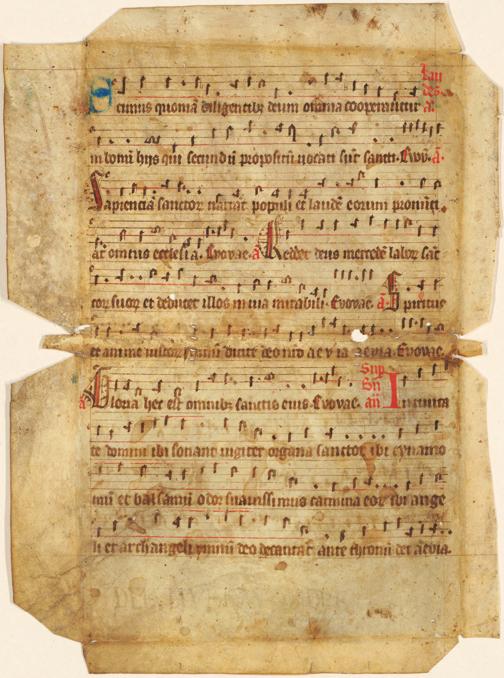 Lau
des
Scimus quoniã diligentibꝫ deum omnia cooperantur a.
in bonũ hijs qui secundũ propositũ uocati sũt sancti. Evovae. ã.
Sapiencia sanctoꝝ narrãt populi et laudẽ eorum pronũci
ãt omnis ecclesia. Evovae. ã Reddet deus mercedẽ laboꝝ sãc
toꝝ suoꝝ et deducet illos in uia mirabili. Evovae. ã. Spiritus
et anime iustoꝝ dicite deo nr̃o aevia aevia. Evovae.
Sup
ã Gloria hec est omnibꝫ sanctis eius. Evovae. añ In ciuita
te domini ibi sonant iugiter organa sanctoꝝ ibi cynamo
mũ et balsamũ odor suauissimus carmina eoꝝ ibi ange
li et archangeli ymnũ deo decantãt ante thronũ dei aevia.